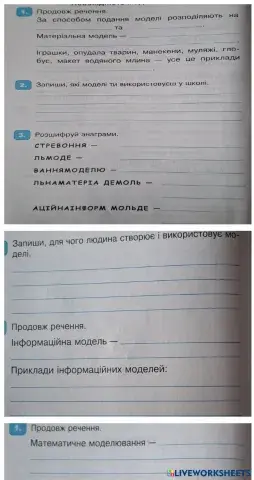 1. Продовж речення.
За способом подання моделі розподіляють на
та
Матеріальна модель —
Іграшки, опудала тварин, манекени, муляжі, гло-
бус, макет водяного млина — усе це приклади
2. Запиши, які моделі ти використовуєш у школі.
3. Розшифруй анаграми.
СТРЕВОННЯ —
ЛЬМОДЕ —
ВАННЯМОДЕЛЮ —
ЛЬНАМАТЕРІА ДЕМОЛЬ —
АЦІЙНАІНФОРМ МОЛЬДЕ —
Запиши, для чого людина створює і використовує мо-
делі.
Продовж речення.
Інформаційна модель —
Приклади інформаційних моделей:
1. Продовж речення.
Математичне моделювання —
LIVEWORKSHEETS